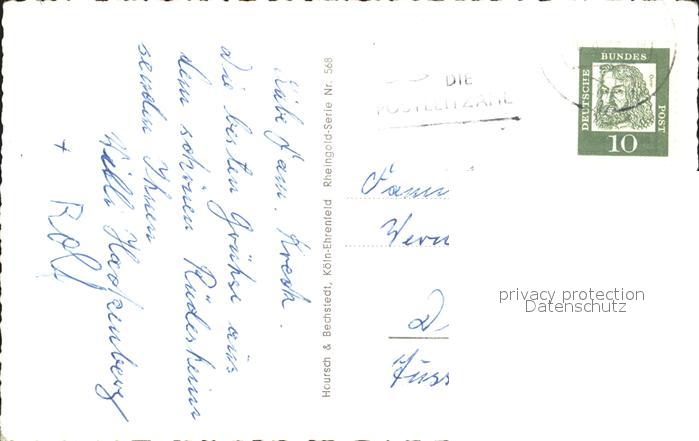 Liebe Fam. Kresk.
Die besten Grüße aus
dem schönen Rüdesheim
senden Ihnen
Willi Hackenberg
+
Rolf
Hoursch & Bechstedt, Köln-Ehrenfeld Rheingold-Serie Nr. 568
DIE
POSTLEITZAHL
DEUTSCHE
BUNDES
POST
10
Fami
Wern
D
Füss
privacy protection
Datenschutz